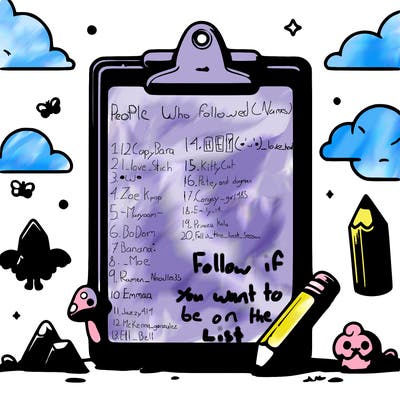 People Who Followed (Names)
1.12CapyBara
2.I_love_Stich
3 •W•
4. Zoe Kpop
5 -Maryoom-
6. BoDom
7 Banana
8. _Moe_
9. Ramen_Noodles35
10 Emmaa
11.Jazzy414
12. McKenna_gonzalez
13. Ell_Bell
14. HEY
15. KittyCat
16. Petey and dogman
17.
18.
19. Princess Kala
20.
Follow if
you want to
be on the
List